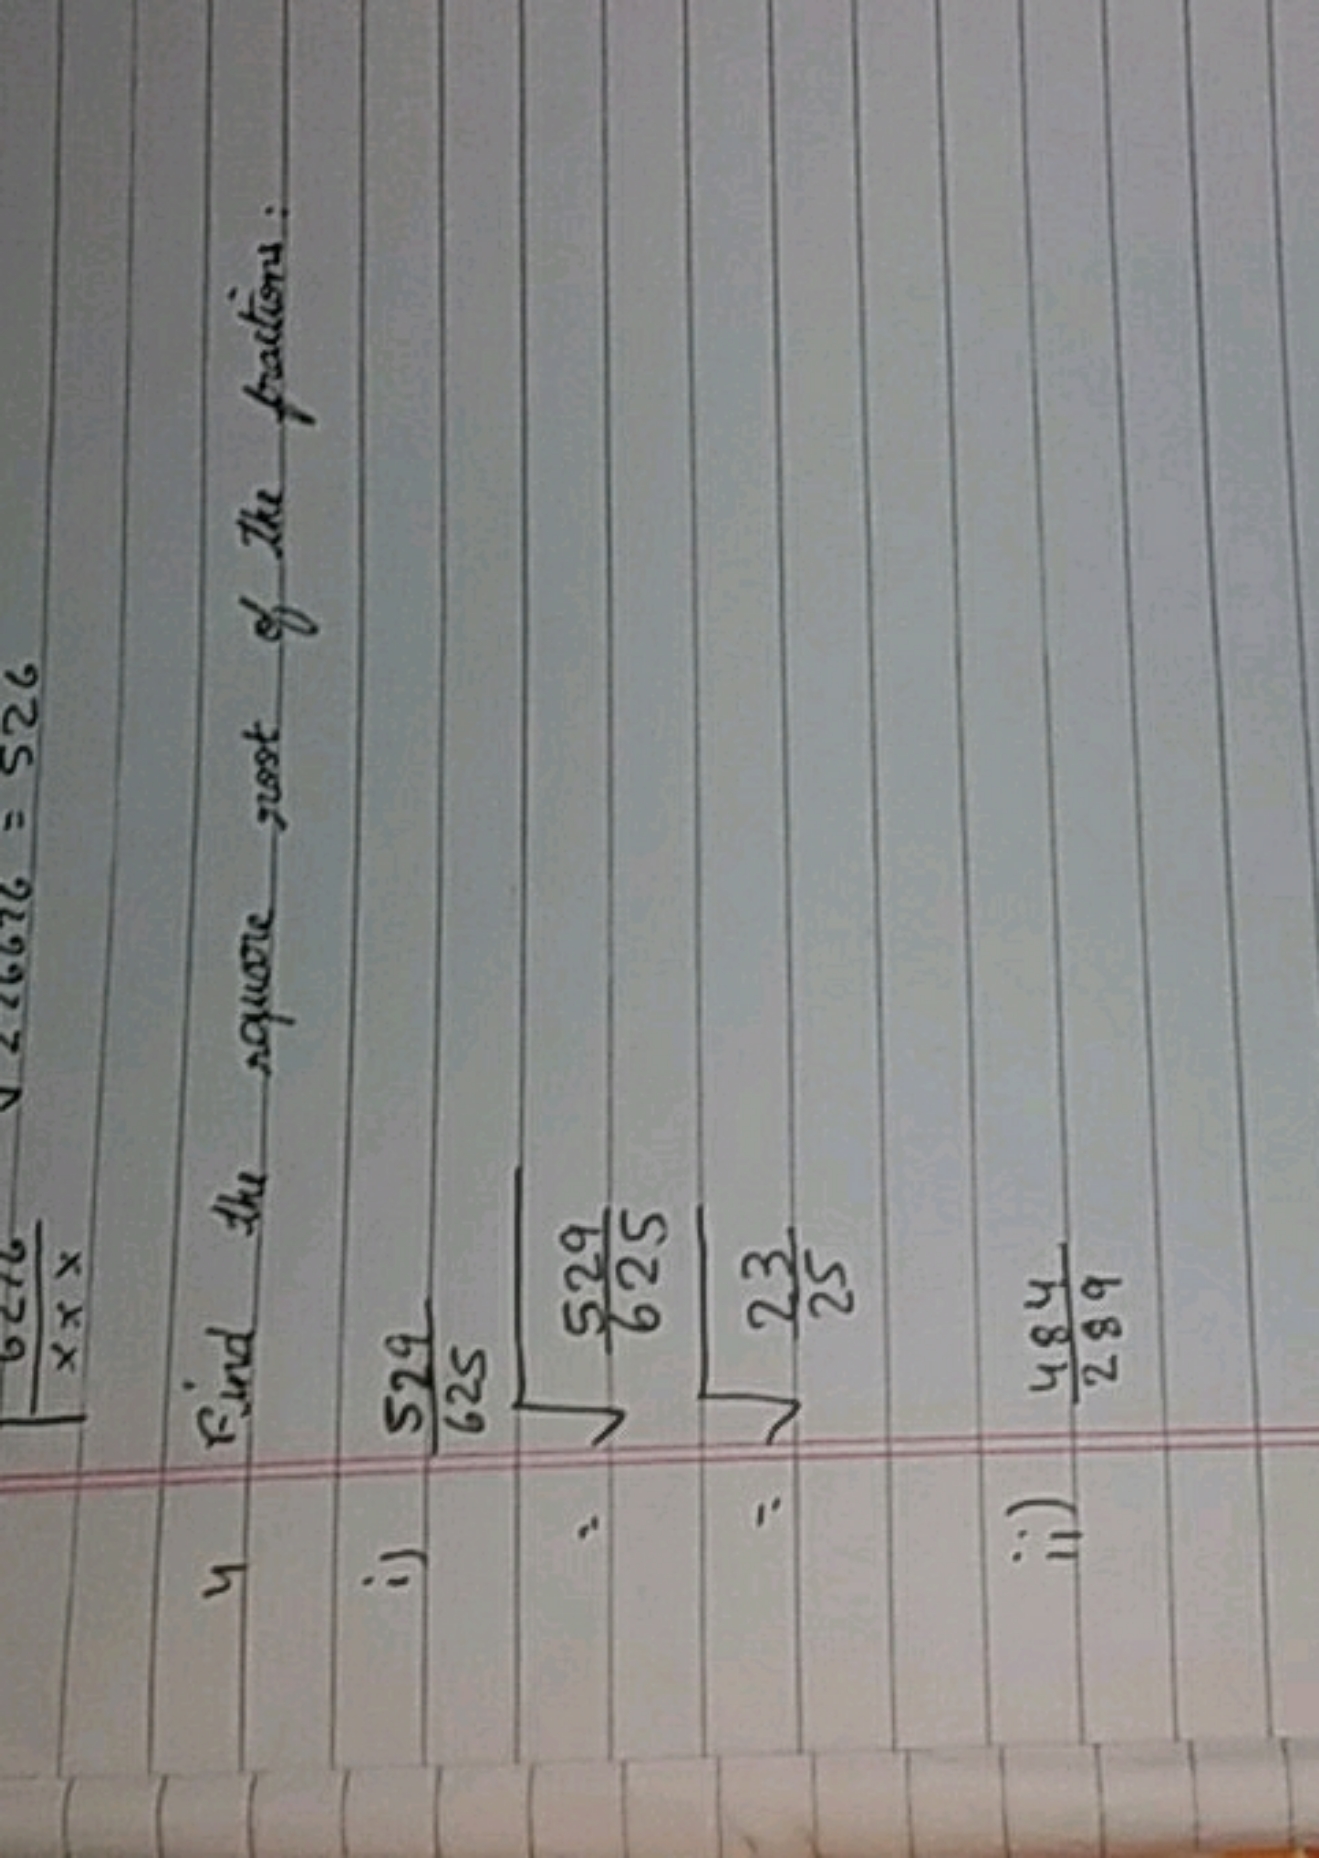 6276
x x x
= 526
4 Find the square root of the fractions:
i) 529
625
= √ 529
625
= √ 23
25
ii) 484
289